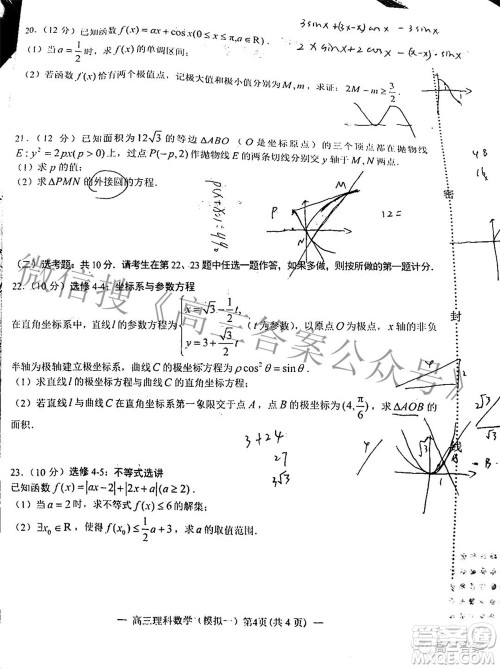 20.（12 分）已知函数 f(x)=ax+cosx(0≤x≤π,a∈R).
（1）当 a=1/2 时，求 f(x) 的单调区间；
（2）若函数 f(x) 恰有两个极值点，记极大值和极小值分别为 M,m，求证：2M−m≥3/2.
21.（12 分）已知面积为 12√3 的等边 △ABO（O 是坐标原点）的三个顶点都在抛物线
E:y²=2px(p>0) 上，过点 P(−p,2) 作抛物线 E 的两条切线分别交 y 轴于 M,N 两点.
（1）求 p 的值；
（2）求 △PMN 的外接圆的方程.
P
M
N
12=
密
（二）选考题：共 10 分. 请考生在第 22、23 题中任选一题作答，如果多做，则按所做的第一题计分.
22.（10 分）选修 4-4：坐标系与参数方程
在直角坐标系中，直线 l 的参数方程为 { x=√3−1/2 t, y=3+√3/2 t （t 为参数），以原点 O 为极点，x 轴的非负
封
半轴为极轴建立极坐标系，曲线 C 的极坐标方程为 ρcos²θ=sinθ.
（1）求直线 l 的极坐标方程与曲线 C 的直角坐标方程；
（2）若直线 l 与曲线 C 在直角坐标系第一象限交于点 A，点 B 的极坐标为 (4,π/6)，求 △AOB 的
面积.
线
3+24
27
3√3
23.（10 分）选修 4-5：不等式选讲
已知函数 f(x)=|ax−2|+|2x+a|(a≥2).
（1）当 a=2 时，求不等式 f(x)≤6 的解集；
（2）∃x₀∈R，使得 f(x₀)≤1/2 a+3，求 a 的取值范围.
微信搜《高三答案公众号》
— 高三理科数学（模拟一）第4页(共 4 页) —